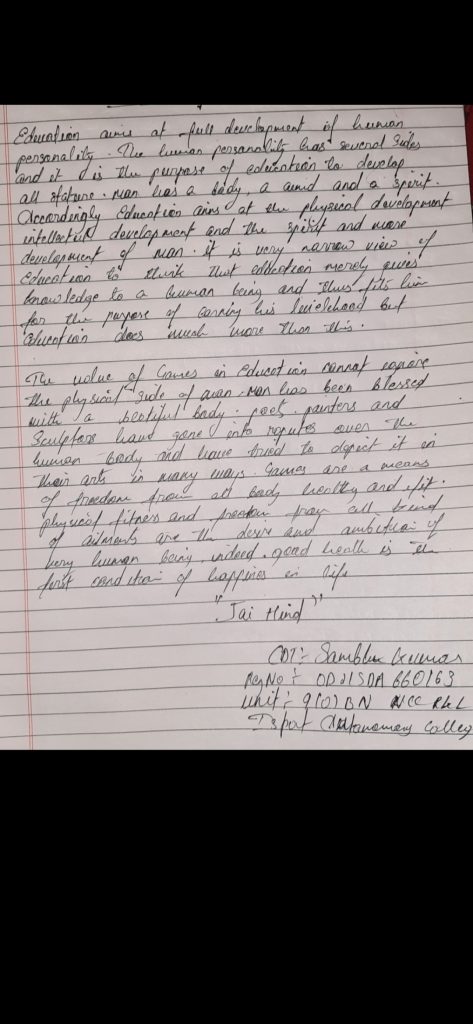 Education aims at full development of human
personality. The human personality has several sides
and it is the purpose of education to develop
all stature. man has a body, a mind and a spirit.
Accordingly Education aims at the physical development
intellectual development and the spirit and more
development of man. it is very narrow view of
Education to think that education merely gives
knowledge to a human being and thus fits him
for the purpose of earning his livelihood but
education does much more than this.
The value of Games in Education cannot ignore
the physical side of man. Man has been Blessed
with a beautiful body. poet, painters and
Sculptors have gone into raputes over the
human body and have tried to depict it in
their arts in many ways. Games are a means
of freedom from all body healthy and fit.
physical fitness and freedom from all kind
of ailments are the desire and ambition of
very human being. indeed. good health is the
first condition of happines in life
"Jai Hind"
CDT:- Kumar
Reg No:- OD21SDA 660163
Unit:- 9(O) BN NCC RKL
Ispat Autonomous College